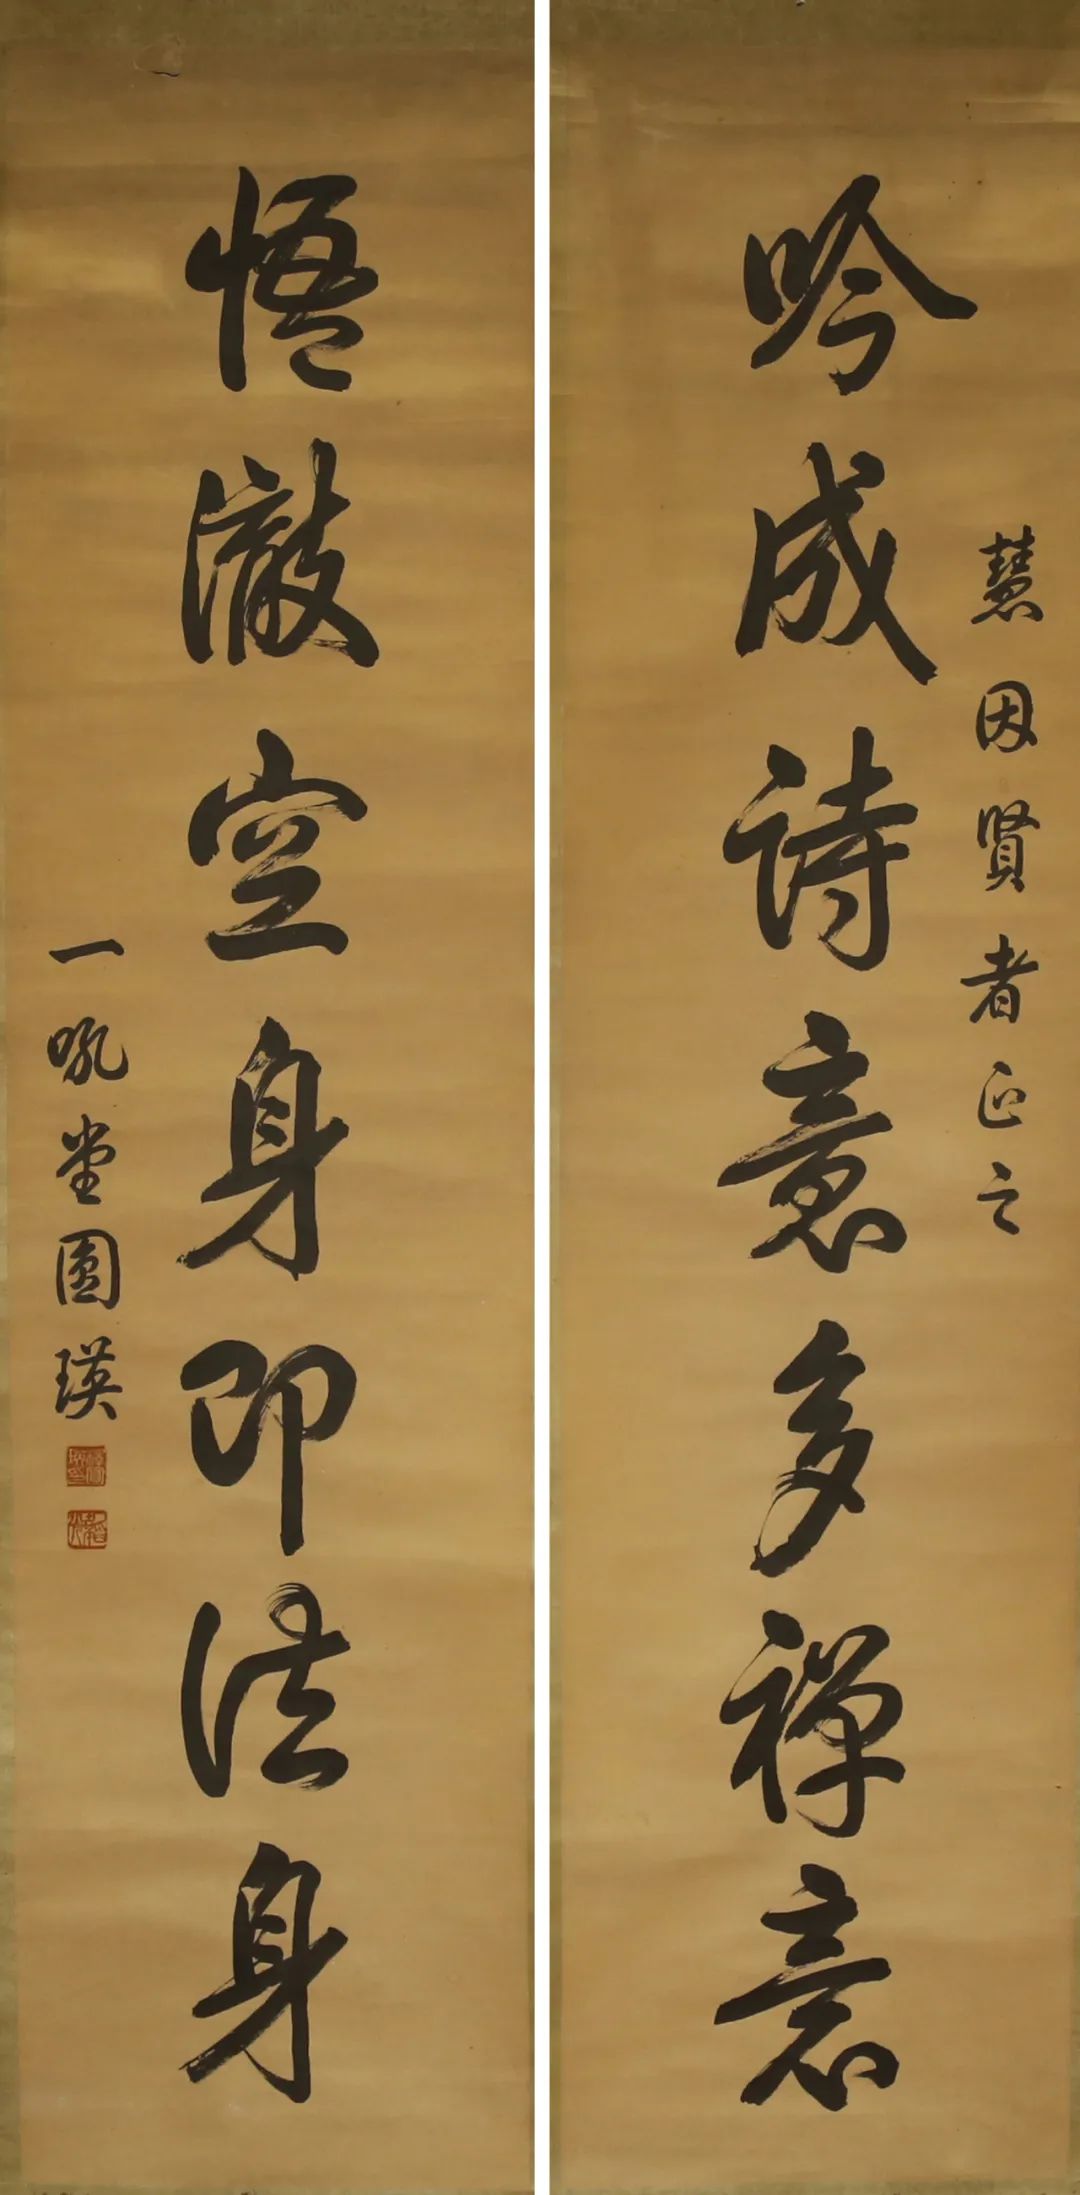 慧因賢者正之
吟成詩意多禪意
悟澈空身即法身
一吼堂圓瑛